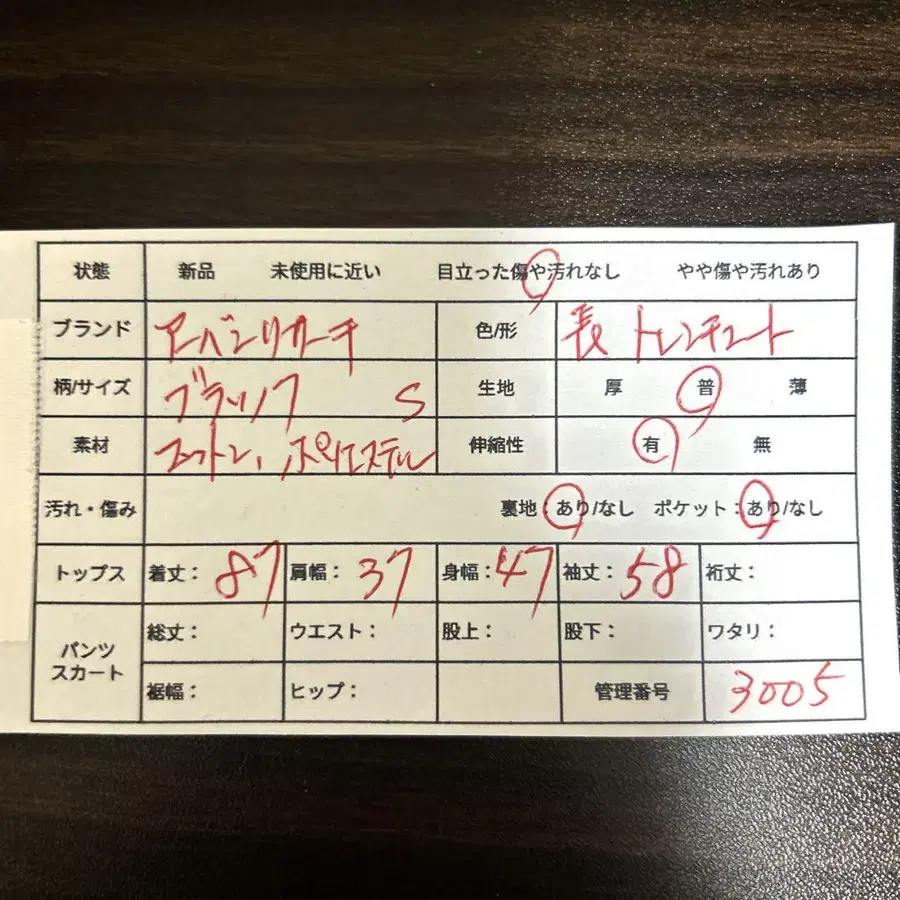 状態 新品 未使用に近い 目立った傷や汚れなし やや傷や汚れあり
ブランド アーバンリサーチ 色/形 長 トレンチコート
柄/サイズ ブラック S 生地 厚 普 薄
素材 コットン、ポリエステル 伸縮性 有 無
汚れ・傷み 裏地:あり/なし ポケット:あり/なし
トップス 着丈: 87 肩幅: 37 身幅: 47 袖丈: 58 裄丈:
パンツ スカート 総丈: ウエスト: 股上: 股下: ワタリ:
裾幅: ヒップ: 管理番号 3005